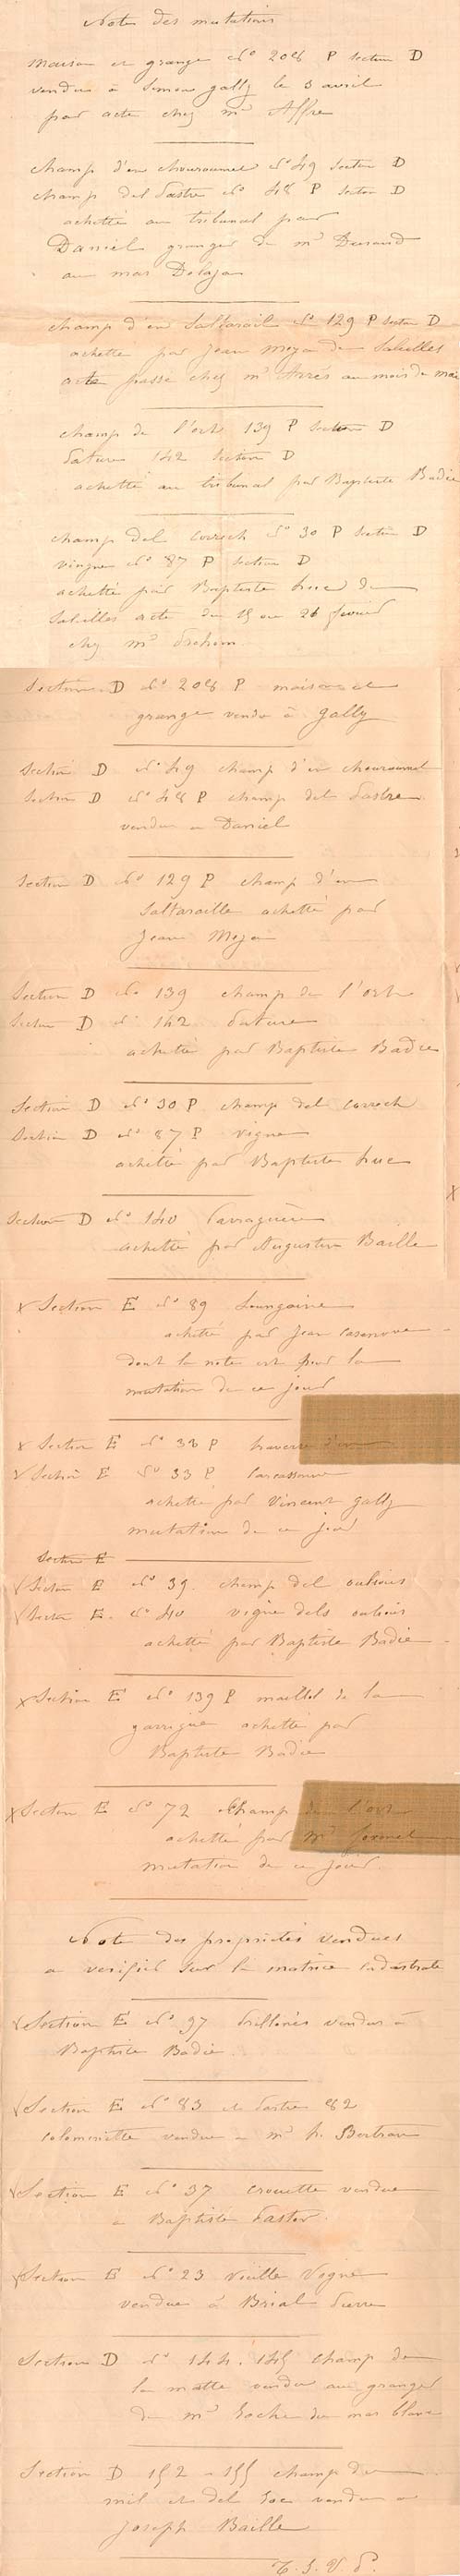 Note des mutations
maison et grange No 208 P section D
vendue a Simon gally le 3 avril
par acte chez mr Affre
champ d'en chouroumel No 49 section D
champ del Sastre No 48 P section D
achetté au tribunal par
Daniel granger de mr Durand
au mas Delaja
champ d'en Saltarail No 129 P section D
achetté par jean Moza de Salelles
acte passé chez mr au mois de mai
champ de l'ort 139 P section D
142 section D
achetté au tribunal par Baptiste Badie
champ del correch No 30 P section D
vingne No 87 P section D
achetté par Baptiste huc de
Salelles acte du 15 ou 26 fevrier
chez mr
Section D No 208 P maison et
grange vendu à gally
Section D No 49 champ d'en chouroumel
Section D No 48 P champ del Sastre
vendu a Daniel
Section D No 129 P champ d'en
Saltaraille achetté par
Jean Moza
Section D No 139 champ de l'ort
Section D No 142
achetté par Baptiste Badie
Section D No 30 P champ del correch
Section D No 87 P vigne
achetté par Baptiste huc
Section D No 140
achetté par Augustin Baille
x Section E No 89
achetté par Jean casenove
dont la note est pour la
mutation de ce jour
x Section E No 38 P
Section E No 33 P Carcassonne
achetté par Vincent gally
mutation de ce jour
Section E
Section E No 39 champ del oulious
Section E No 40 vigne dels oulious
achetté par Baptiste Badie
x Section E No 139 P maillol de la
garrigue achetté par
Baptiste Badie
x Section E No 72 champ de l'ort
achetté par mr
mutation de ce jour
Note des propriétés vendues
a verifier sur la matrice cadastrale
Section E No 97 vendus à
Baptiste Badie
Section E No 83 et 82
vendue a mr h. Bertran
Section E No 37 crouette vendue
a Baptiste Pastor
Section E No 23 vieille Vigne
vendue à Brial Pierre
Section D No 144. 145 champ de
la matte vendu au granger
de mr Roche du mas blanc
Section D 152 a 155 champ de
mil et del vendu a
Joseph Baille
T. S. V. P.